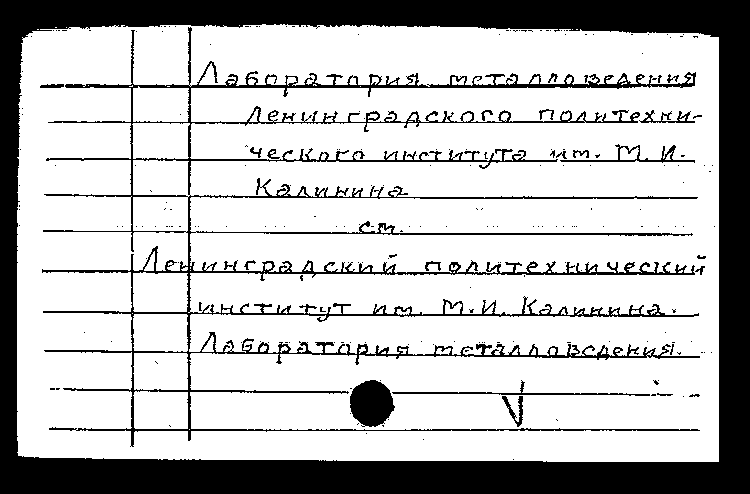 Лаборатория металловедения
Ленинградского политехни-
ческого института им. М. И.
Калинина
см.
Ленинградский политехнический
институт им. М.И. Калинина.
Лаборатория металловедения.